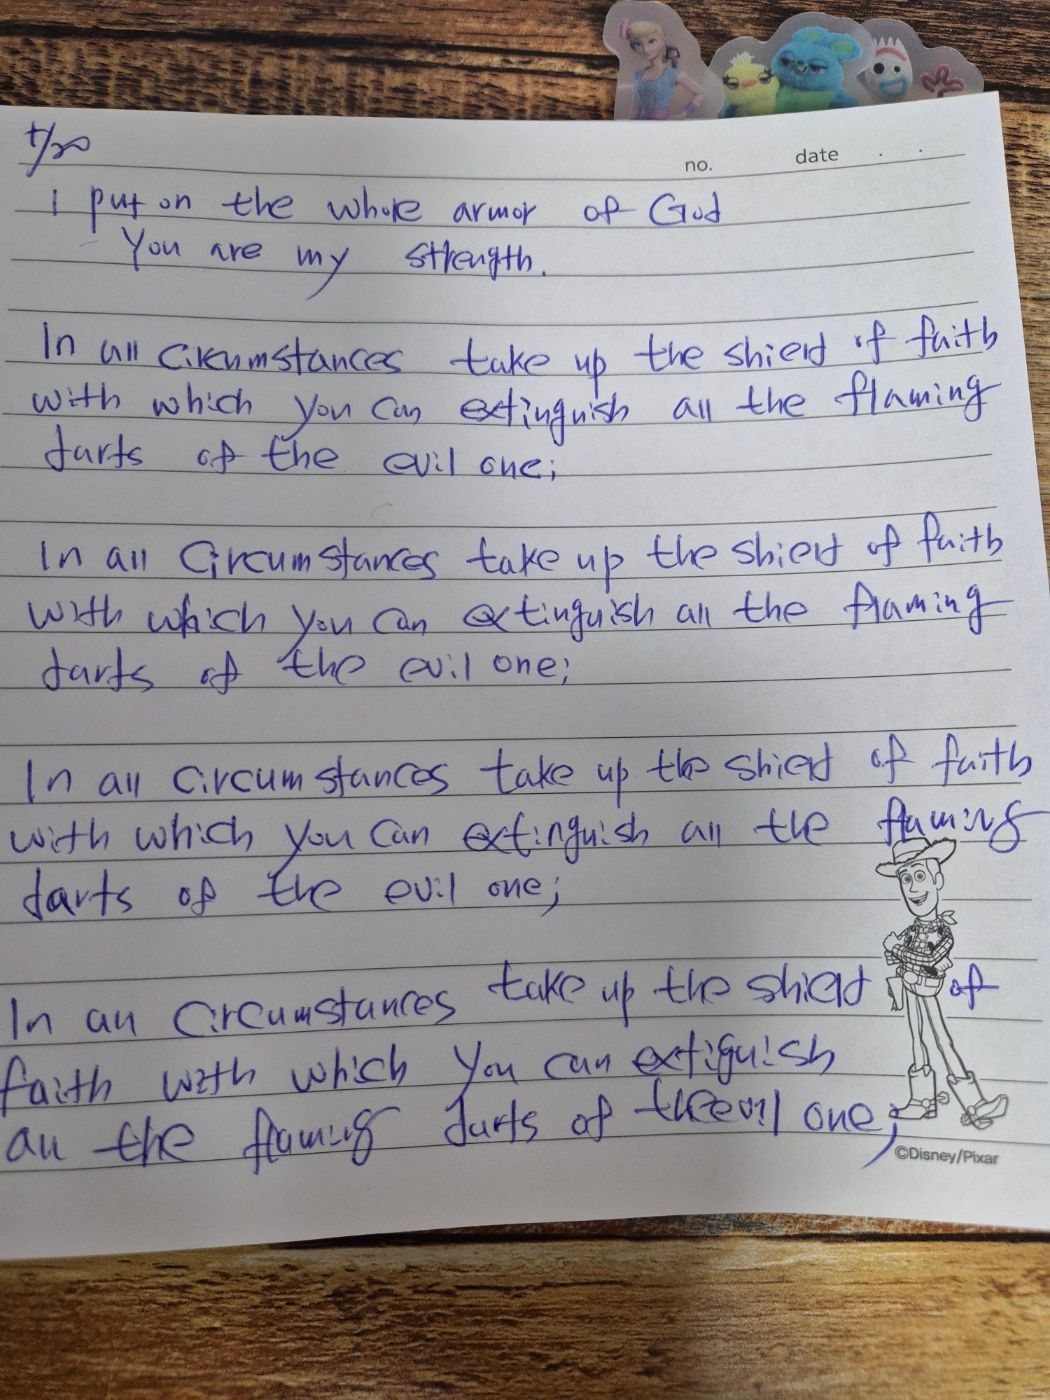 no. date . .
I put on the whole armor of God
You are my strength.
In all circumstances take up the shield of faith
with which you can extinguish all the flaming
darts of the evil one;
In all circumstances take up the shield of faith
with which you can extinguish all the flaming
darts of the evil one;
In all circumstances take up the shield of faith
with which you can extinguish all the flaming
darts of the evil one;
In all circumstances take up the shield of
faith with which you can extiguish
all the flaming darts of the evil one;
©Disney/Pixar